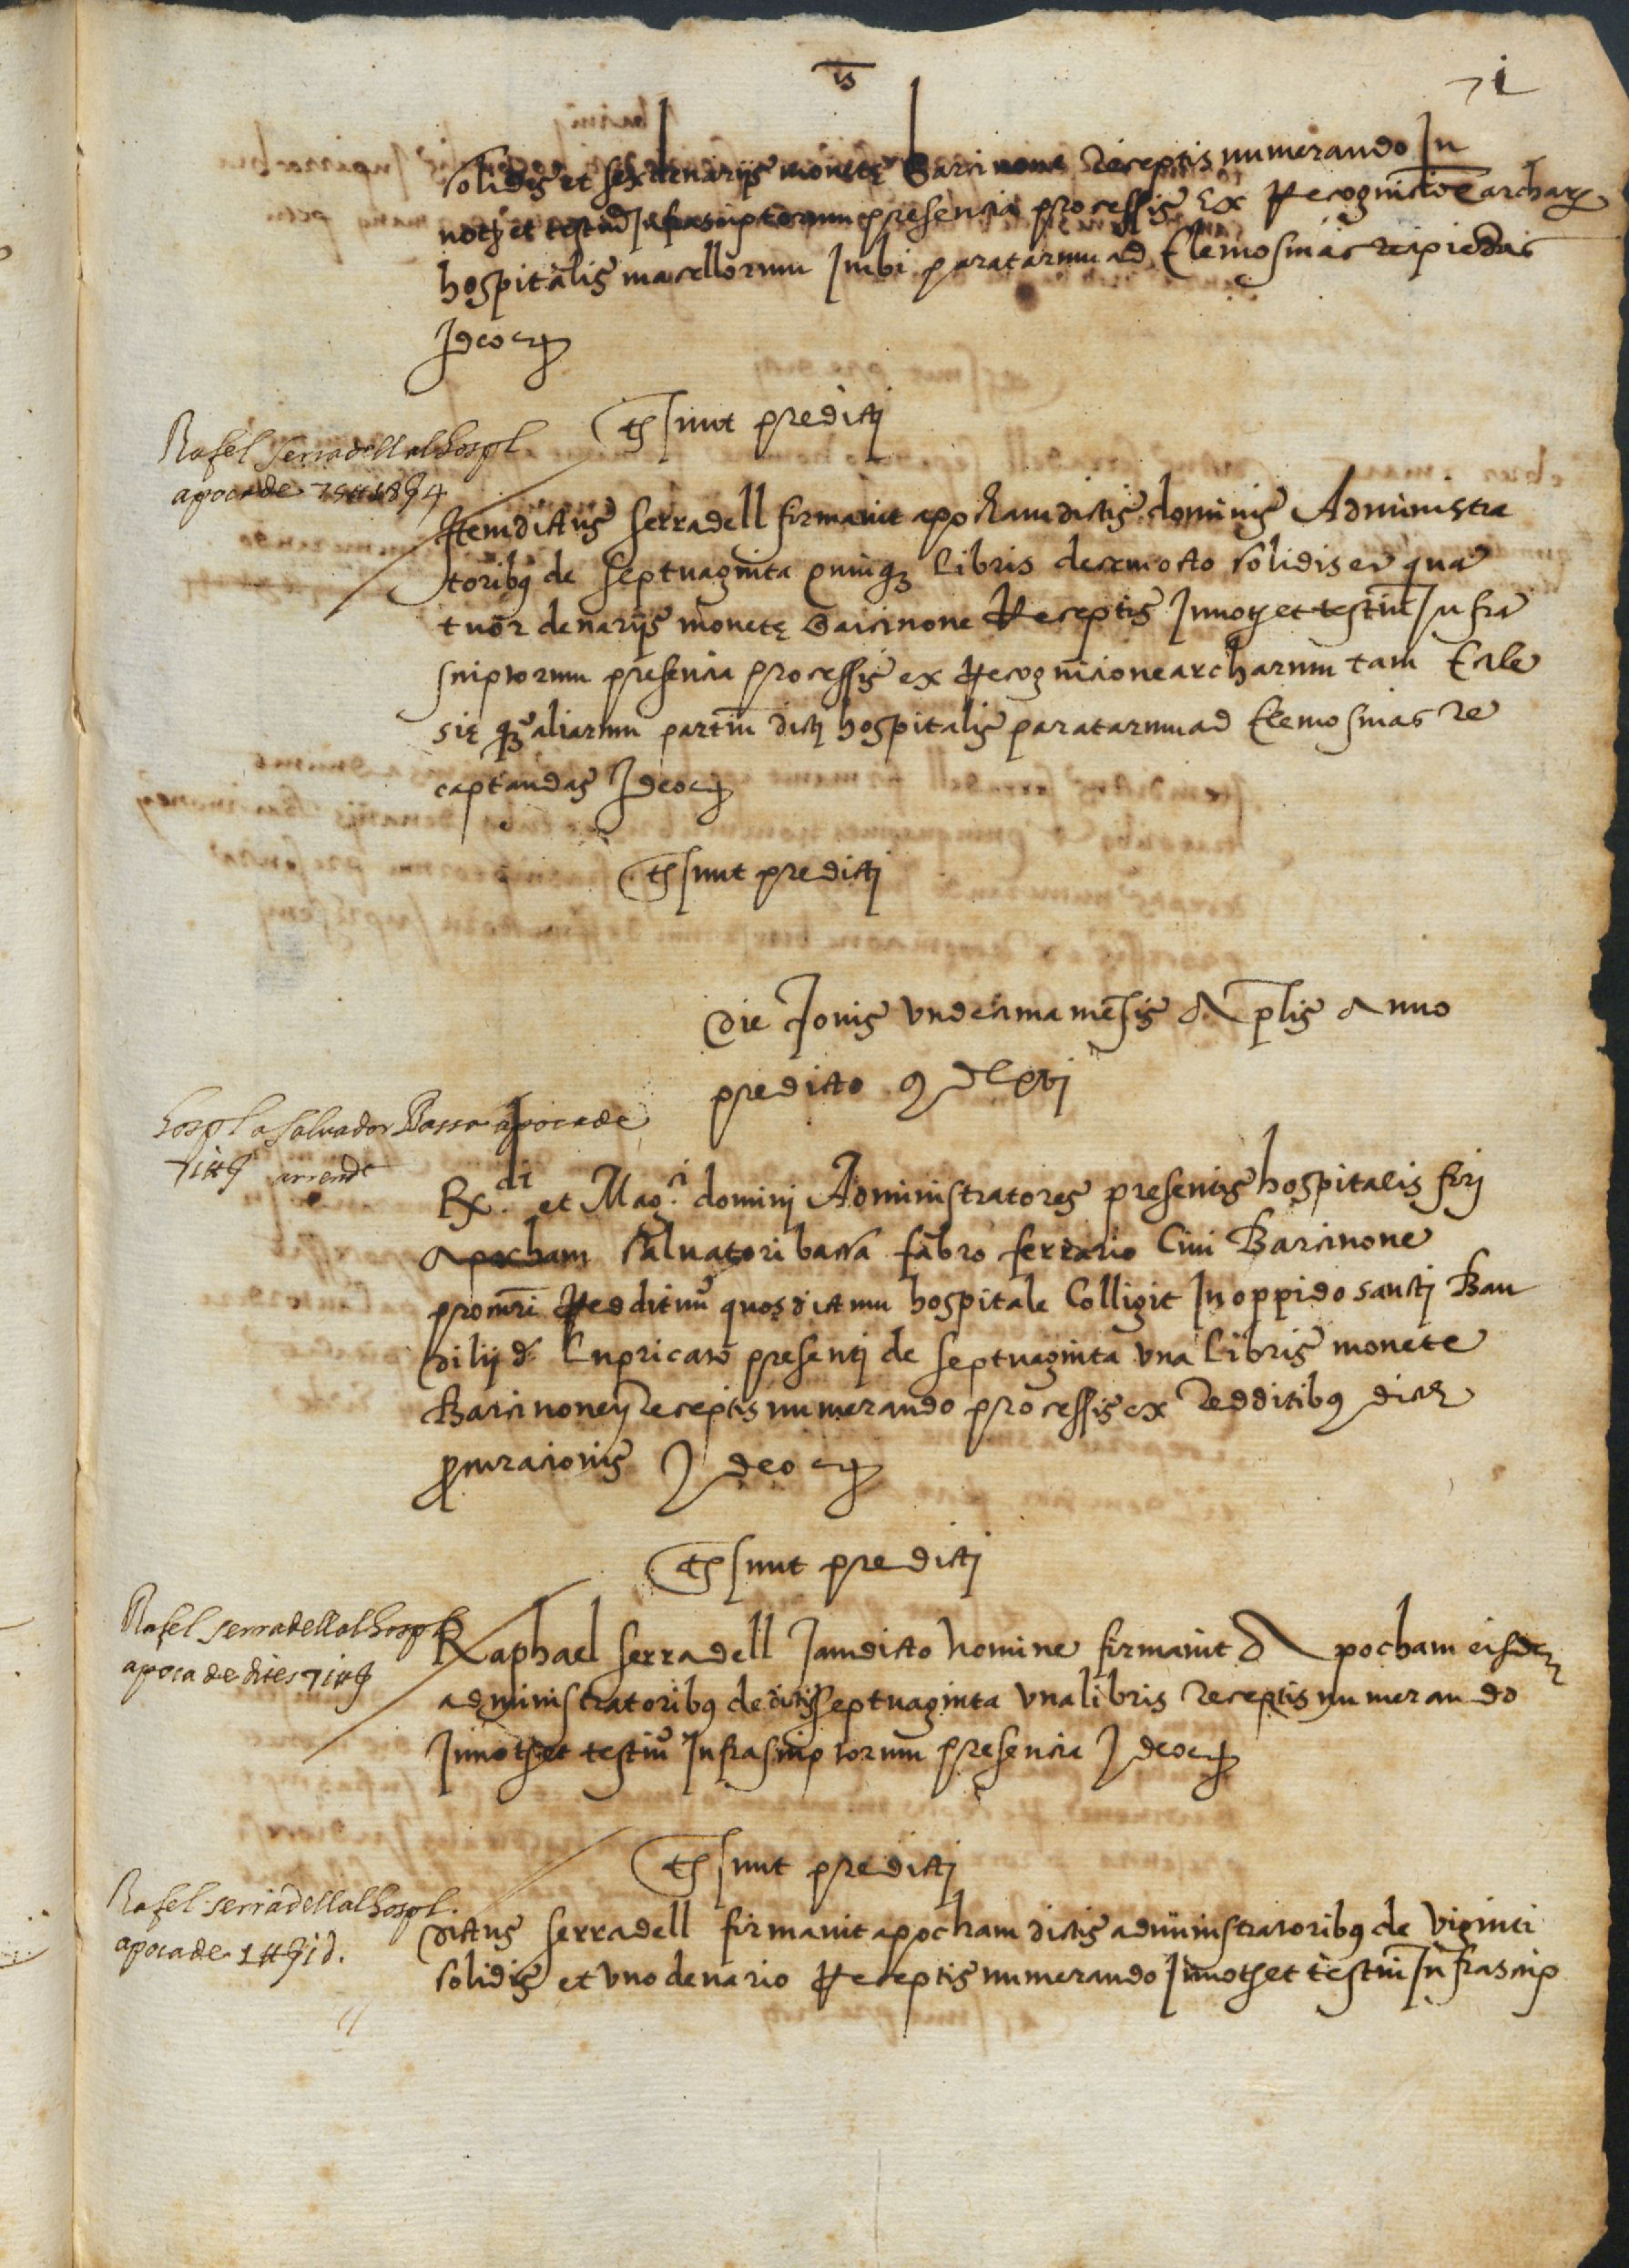 is
71
solidis et sex denarijs monetę Barcinone Receptis numerando In
notj et testiū Infrascriptorum presencia processis Ex Recognitiōe archarū
hospitalis macellorum Inibi paratarum ad Elemosinas recipiēdas
Ideo etc
Ts sunt predictj
Rafel Serradell al hospl
apoca de 75 ll 18 s 4
Item dictus serradell firmavit apocham dictis dominis Administra
toribꝰ de septuaginta quinqꝫ Libris decemocto solidis et qua
tuor denarijs monetę Barcinone Receptis In notj et testiū Infra
scriptorum presencia processis ex Recognicione archarum tam Eccle
się qꝫ aliarum partiū dictj hospitalis paratarum ad Elemosinas re
captandas Ideo etc
Ts sunt predictj
Die Jovis vndecima mēsis Aplis Anno
predicto MDLxvj
hospl a Salvador Bassa apoca de
71 ll s arrendt
Rdi et Magci dominj Administratores presentis hospitalis firj
Apocham salvatori bassa fabro ferrario Civi Barcinone
procuri Reddituū quos dictum hospitale Colligit In oppido sanctj Bau
dilij d Lupricato presentj de septuaginta vna Libris monete
Barcinonej Receptis numerando processis ex Redditibꝰ dictę
procuracionis Ideo etc
Ts sunt predictj
Rafel serradell al hospl
apoca de dites 71 ll s
Raphael serradell Jamdicto nomine firmavit Apocham eisdem
administratoribꝰ de dictis septuaginta vna libris Receptis numerando
In notj et testiū Infrascriptorum presencia Ideo etc
Ts sunt predictj
Rafel serradell al hospl.
apoca de 1 ll s 1 d.
Dictus serradell firmavit apocham dictis administratoribꝰ de viginti
solidis et vno denario Receptis numerando In notj et testiū Infrascrip